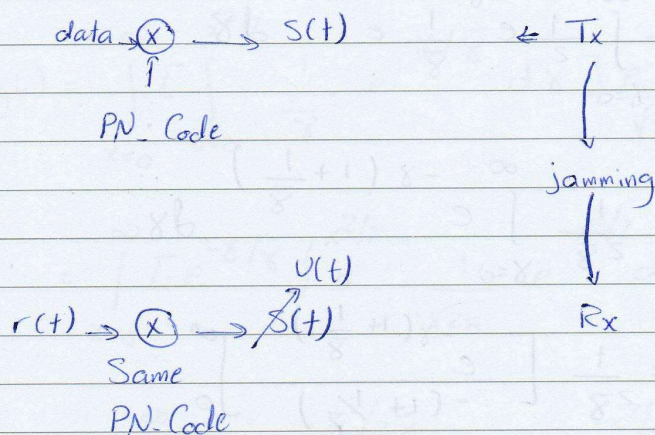 data → ⊗ → S(t) ← Tx
↑
PN_ Code
jamming
U(t)
r(t) → ⊗ → S(t) Rx
Same
PN_Code